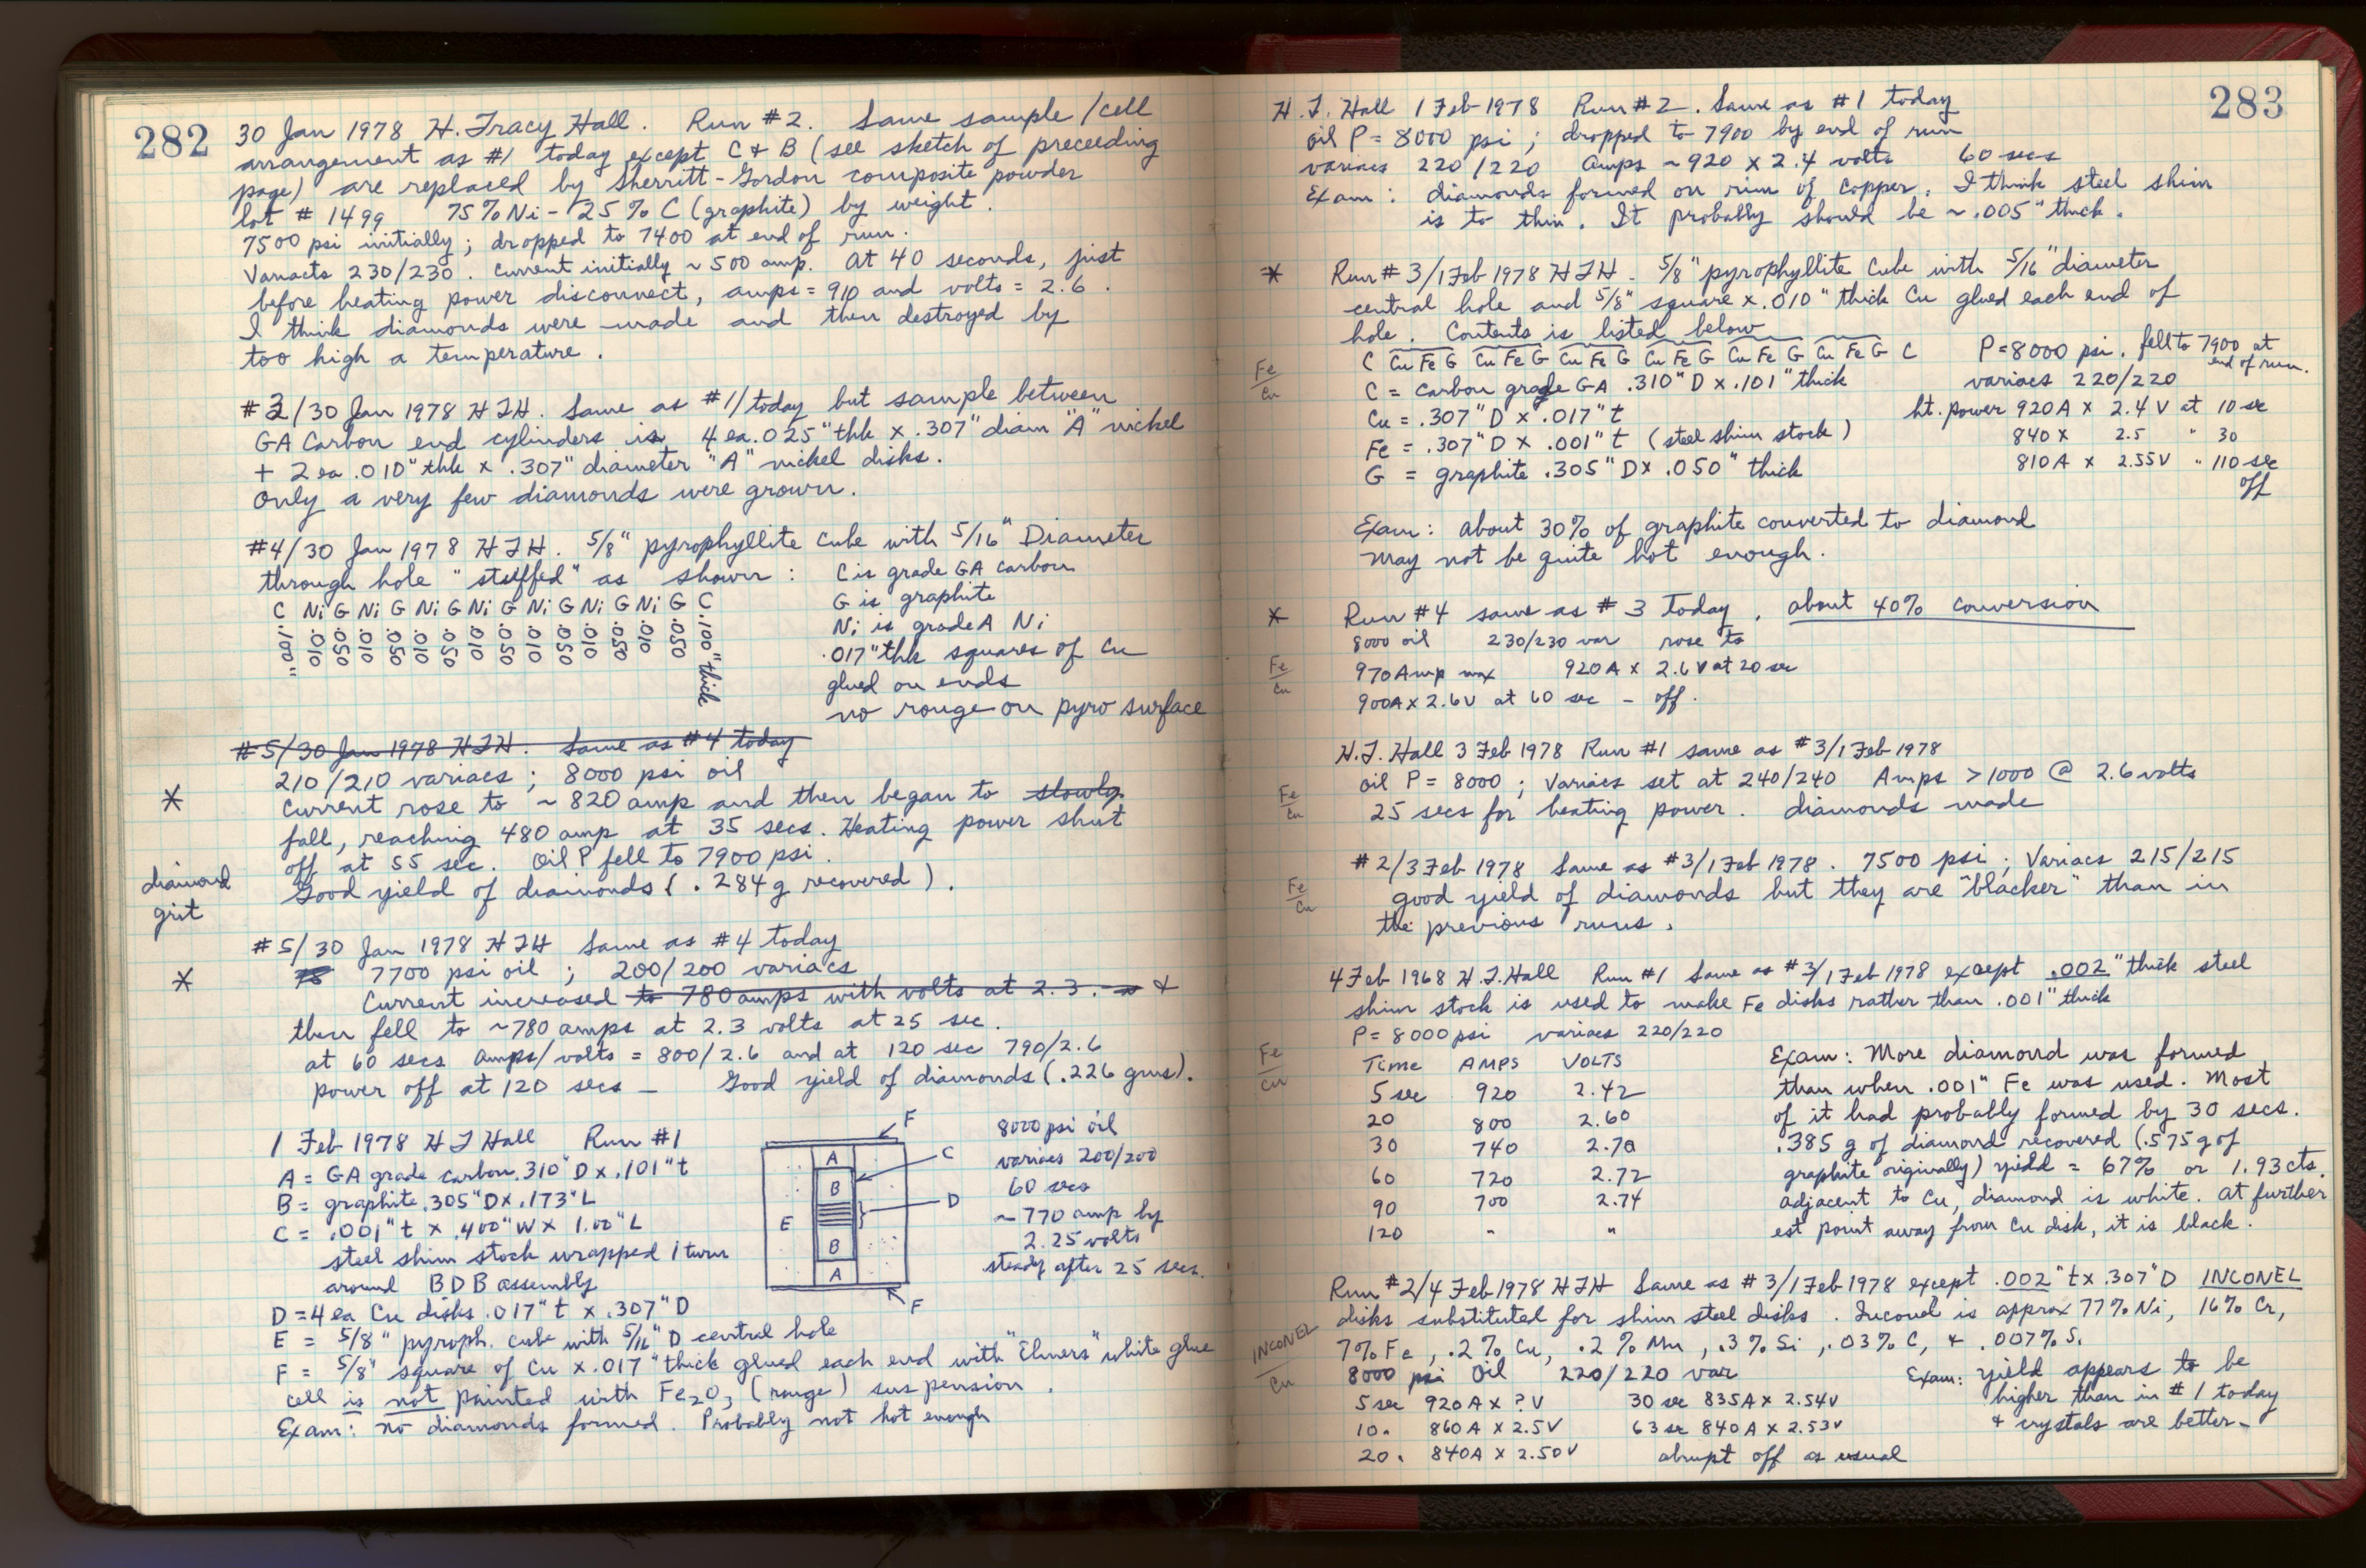 282
30 Jan 1978 H. Tracy Hall. Run #2. Same sample/cell
arrangement as #1 today except C & B (see sketch of preceeding
page) are replaced by Sherritt-Gordon composite powder
lot # 1499 75% Ni - 25% C (graphite) by weight.
7500 psi initially; dropped to 7400 at end of run.
Variacts 230/230. Current initially ~ 500 amp. At 40 seconds, just
before heating power disconnect, amps = 910 and volts = 2.6.
I think diamonds were made and then destroyed by
too high a temperature.
#3/30 Jan 1978 HTH. Same as #1/today but sample between
GA Carbon end cylinders is 4 ea .025" thk x .307" diam "A" nickel
+ 2 ea .010" thk x .307" diameter "A" nickel disks.
Only a very few diamonds were grown.
#4/30 Jan 1978 HTH. 5/8" pyrophyllite cube with 5/16" Diameter
through hole "stuffed" as shown: C is grade GA carbon
C Ni G Ni G Ni G Ni G Ni G Ni G Ni G C G is graphite
.100" .010 .050 .010 .050 .010 .050 .010 .050 .010 .050 .010 .050 .010 .050 .100" thick Ni is grade A Ni
.017" thk squares of Cu
glued on ends
no rouge on pyro surface
#5/30 Jan 1978 HTH. Same as #4 today
210/210 variacs; 8000 psi oil
* Current rose to ~ 820 amp and then began to slowly
fall, reaching 480 amp at 35 secs. Heating power shut
off at 55 sec. Oil P fell to 7900 psi.
diamond Good yield of diamonds (.284g recovered).
grit
#5/30 Jan 1978 HTH Same as #4 today
* 7700 psi oil; 200/200 variacs
Current increased to 780 amps with volts at 2.3. &
then fell to ~780 amps at 2.3 volts at 25 sec.
at 60 secs amps/volts = 800/2.6 and at 120 sec 790/2.6
power off at 120 secs - Good yield of diamonds (.226 gms).
1 Feb 1978 H T Hall Run #1
A = GA grade carbon .310" D x .101" t
B = graphite .305" D x .173" L
C = .001" t x .400" W x 1.00" L
steel shim stock wrapped 1 turn
around BDB assembly
D = 4 ea Cu disks .017" t x .307" D
E = 5/8" pyroph. cube with 5/16" D central hole
F = 5/8" square of Cu x .017" thick glued each end with "Elmers" white glue
cell is not painted with Fe2O3 (rouge) suspension.
Exam: no diamonds formed. Probably not hot enough
F
A
C
B
D
E
B
A
F
8000 psi oil
variacs 200/200
60 secs
~ 770 amp by
2.25 volts
steady after 25 secs.
283
H. T. Hall 1 Feb 1978 Run #2. Same as #1 today
oil P = 8000 psi; dropped to 7900 by end of run
variacs 220/220 Amps ~ 920 x 2.4 volts 60 secs
Exam: diamonds formed on rim of copper. I think steel shim
is to thin. It probably should be ~ .005" thick.
* Run #3/1 Feb 1978 HTH. 5/8" pyrophyllite cube with 5/16" diameter
central hole and 5/8" square x .010" thick Cu glued each end of
hole. Contents is listed below
C Cu Fe G Cu Fe G Cu Fe G Cu Fe G Cu Fe G Cu Fe G C P = 8000 psi. fell to 7900 at
end of run.
Fe/Cu C = Carbon grade GA .310" D x .101" thick variacs 220/220
Cu = .307" D x .017" t ht. power 920A x 2.4 V at 10 sec
Fe = .307" D x .001" t (steel shim stock) 840 x 2.5 " 30
G = graphite .305" D x .050" thick 810 A x 2.55V " 110 sec
off
Exam: about 30% of graphite converted to diamond
may not be quite hot enough.
* Run #4 same as #3 today. about 40% conversion
8000 oil 230/230 var rose to
Fe/Cu 970 Amp max 920A x 2.6V at 20 sec
900A x 2.6V at 60 sec - off.
H.T. Hall 3 Feb 1978 Run #1 same as #3/1 Feb 1978
Fe/Cu oil P = 8000; Variacs set at 240/240 Amps > 1000 @ 2.6 volts
25 secs for heating power. diamonds made
#2/3 Feb 1978 Same as #3/1 Feb 1978. 7500 psi; Variacs 215/215
Fe/Cu good yield of diamonds but they are "blacker" than in
the previous runs.
4 Feb 1968 H.T. Hall Run #1 Same as #3/1 Feb 1978 except .002" thick steel
shim stock is used to make Fe disks rather than .001" thick
P = 8000 psi variacs 220/220
Fe/Cu
Time AMPS VOLTS
5 sec 920 2.42
20 800 2.60
30 740 2.70
60 720 2.72
90 700 2.74
120 " "
Exam: More diamond was formed
than when .001" Fe was used. Most
of it had probably formed by 30 secs.
.385 g of diamond recovered (.575g of
graphite originally) yield = 67% or 1.93 cts.
adjacent to Cu, diamond is white. At further
est point away from Cu disk, it is black.
Run #2/4 Feb 1978 HTH Same as #3/1 Feb 1978 except .002" t x .307" D INCONEL
disks substituted for shim steel disks. Inconel is approx 77% Ni, 16% Cr,
INCONEL/Cu 7% Fe, .2% Cu, .2% Mn, .3% Si, .03% C, & .007% S.
8000 psi Oil 220/220 var
5 sec 920 A x ? V 30 sec 835A x 2.54V
10 " 860 A x 2.5V 63 sec 840A x 2.53V
20 " 840A x 2.50V abrupt off as usual
Exam: yield appears to be
higher than in #1 today
& crystals are better-